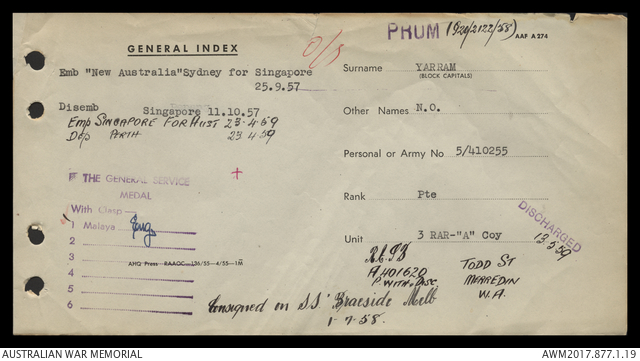 PHUM (920/2122/58) AAF A274
GENERAL INDEX
O/S
Emb "New Australia"Sydney for Singapore
25.9.57
Disemb Singapore 11.10.57
Emp SINGAPORE FOR AUST 23-4-59
Dep PERTH 23 4 59
THE GENERAL SERVICE
MEDAL
With Clasp
1 Malaya
2
3
4
5
6
AHQ Press RAAOC 136/55-4/55-1M
Surname YARRAM
(BLOCK CAPITALS)
Other Names N.O.
Personal or Army No 5/410255
Rank Pte
Unit 3 RAR-"A" Coy
DISCHARGED
13 5 59
A401620
P WITH DISC
TODD ST
MERREDIN
W.A.
Consigned on S.S. Braeside Melb
1-7-58.
AUSTRALIAN WAR MEMORIAL
AWM2017.877.1.19